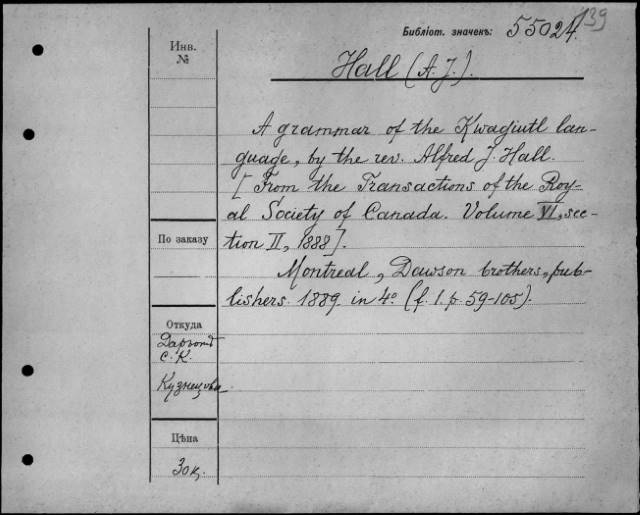 Библіот. значекъ: 55024. 139
Инв.
№
Hall (A. J.).
A grammar of the Kwagiutl lan-
guage, by the rev. Alfred J. Hall.
[From the Transactions of the Roy-
al Society of Canada. Volume VI, sec-
tion II, 1888].
По заказу
Montreal, Dawson brothers, pub-
lishers. 1889. in 4º (f. 1. p. 59-105).
Откуда
С. К.
Кузнецова.
Цѣна
30 к.